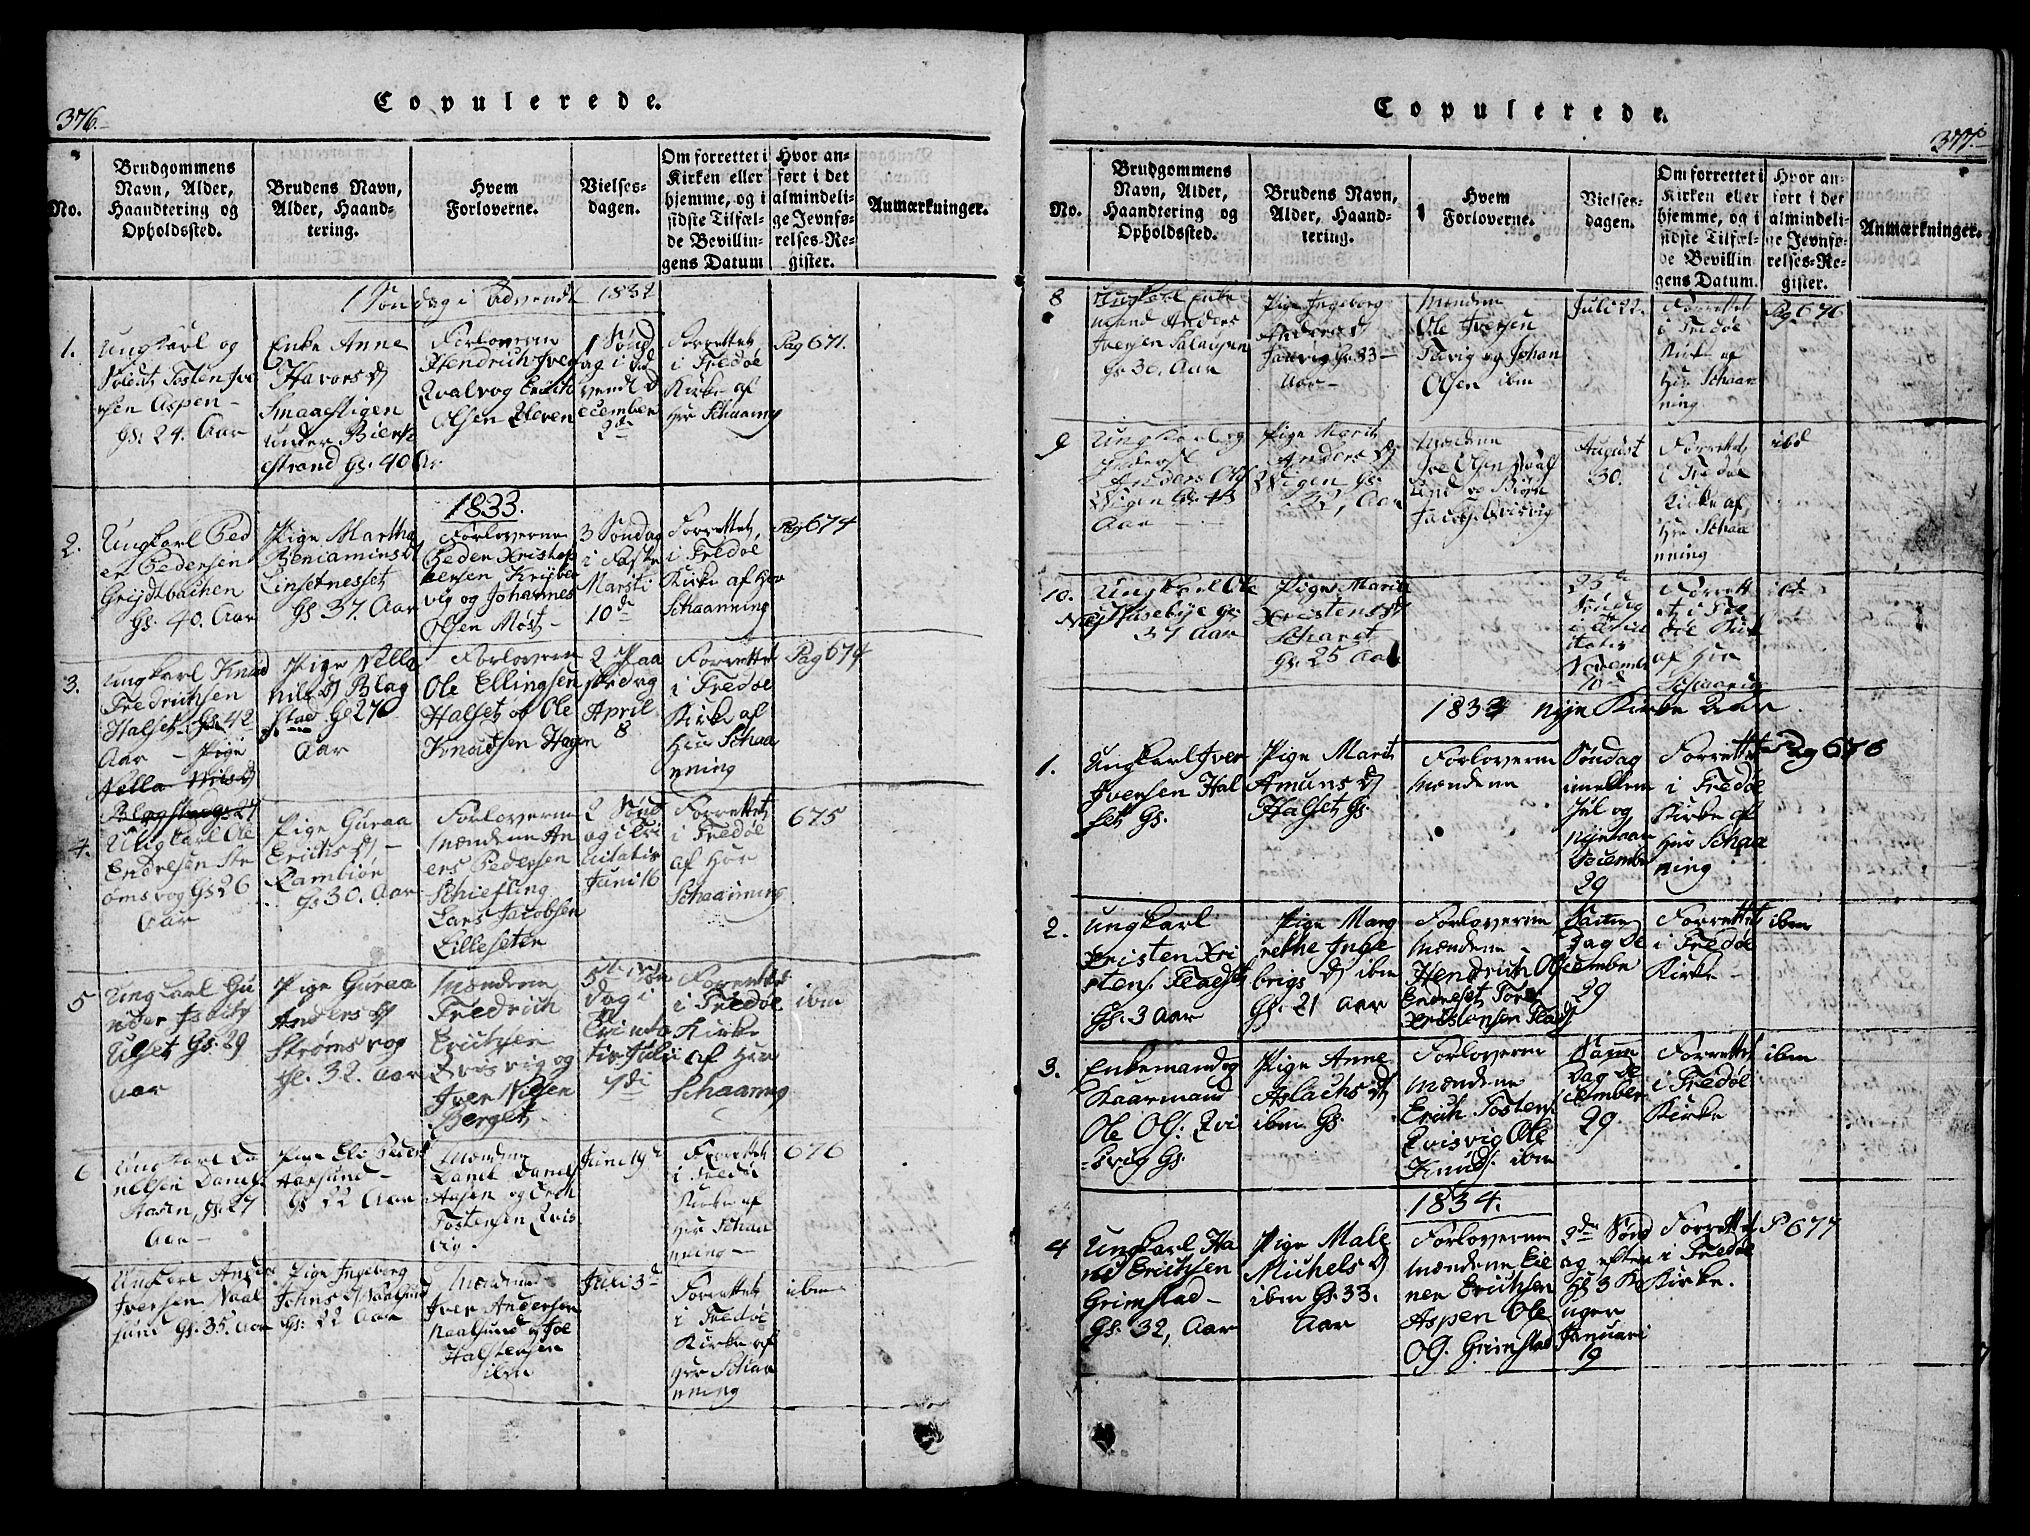 376.
Copulerede.
No.
Brudgommens
Navn, Alder,
Haandtering og
Opholdssted.
Brudens Navn,
Alder, Haand-
tering.
Hvem
Forloverne.
Vielses-
dagen.
Om forrettet i
Kirken eller
hjemme, og i
sidste Tilfæl-
de Bevillin-
gens Datum
Hvor an-
ført i det
almindeli-
ge Jevnfø-
relses-Re-
gister.
Anmærkninger.
1 Søndag i Advendt 1832
1.
Ungkarl og
Soldt Tosten Ive
rsen Aspen
Gs. 24. Aar
Enke Anne
Havors D
Smaaefligen
under Bierk
estrand Gs. 40 Ar
Forloverne
Hendrich Iver
Qvalvog Erich
Olsen Kleven
1 Sønd
ag i Ad
vendt D
ecember
2de
Forrettet
i Fredøe
Kirke af
Hrr Schaaning
Pag 671.
1833.
2.
Ungkarl Ped
er Pedersen
Greijdtbachen
Gs. 40. Aar
Pige Martha
Beniamins D
Linsetnesset
Gs 37. Aar
Forloverne
Peder Xristop
hersen Krijbe
vig og Johannes
Olsen Møst
3 Søndag
i Faste
Marsti
10de
Forrettet,
i Fredøe
Kirke af Hrr
Schaanning
Pag 674
3.
Ungkarl Knud
Fredrichsen
Halset Gs. 42
Aar
Pige
Nella Nils D
Blagstad gs 27
Pige Nella
Nils D Blag
stad Gs 27
Aar
Forloverne
Ole Ellingsen
Halset og Ole
Knudsen Hagen
2 Paa
skedag
April
8
Forrettet
i Fredøe
Kirke af
Hrr Schaa
nning
Pag 674
4.
Ungkarl Ole
Endresen Str
ømsvog Gs 26
Aar
Pige Guraa
Erichs D
Rambiør
Gs 30. Aar
Forloverne
Mændene An
ers Pedersen
Schiefling
Lars Jacobsen
Lilleseten
2 Sønd
ag i Tri
nitatis
Juni 16
Forrettet
i Fredøe
af Hrr
Schaanning
675
5
Ungkarl Gu
nder
Ulset Gs. 29
Aar
Pige Guraa
Anders D
Strømsvog
Gs. 32. Aar
Mændene
Fredrich
Erichsen
Qvisvig og
Iver Nilsen
Berget
5te Søn
dag i
Trinita
tis Juli
Forrettet
i Fredøe
Kirke
af Hrr
Schaanning
ibm
6
Ungkarl Da
nielsen Daniels
Aasen, gs. 27
Aar
Pige Eli Peders
Aarsund
Gs 22 Aar
Mændene
Daniel Daniels
Aasen og Erich
Tostensen Qvis
vig.
Juni 19d
Forrettet
i Fredøe
Kirke af
Hrr Schaa
nning
676
7
Ungkarl Anders
Iversen Naal
sund Gs. 35. Aar
Pige Ingeborg
Johns D Naalsund
Gs. 22 Aar
Mændene
Iver Andersen
Naalsund og Joe
Halstensen
ibm
Juli 3d
Forrettet
i Fredøe
Kirke af
Hrr Schaa
nning
ibm
Copulerede.
377.
No.
Brudgommens
Navn, Alder,
Haandtering og
Opholdssted.
Brudens Navn,
Alder, Haand-
tering.
Hvem
Forloverne.
Vielses-
dagen.
Om forrettet i
Kirken eller
hjemme, og i
sidste Tilfæl-
de Bevillin-
gens Datum.
Hvor an-
ført i det
almindeli-
ge Jevnfø-
relses-Re-
gister.
Anmærkninger.
8
Ungkarl Enke
mand Anders
Iversen
Gs 30. Aar
Pige Ingeborg
Anders D
Gs. 33
Aar
Mændene
Ole Iversen
og Johan
Olsen ibm
Juli 22.
Forrettet
i Fredøe
Kirke af
Hrr Schaan
ning
Pag 676
9
Ungkarl og
Anders Ols
Wigen Gs 43
Aar
Pige Marit
Anders D
Wigen Gs.
42, Aar
Mændene
Ole Olsen
og Biørn
Jacobs. Qvisvig
August
30.
Forrettet
i Fredøe
Kirke af,
Hrr Schaa
nning
ibd
10.
Ungkarl Ole
Husebye Gs
37 Aar
Pige Marit
Xristens D
Gs. 25 Aar
23de
Søndag
i Trini
tatis
Novembr
10d
Forrett
et i Fre
døe Kirk
af Hrr
Schaanin
ibd
1833 nye Kirke Aar
1.
Ungkarl Iver
Iversen Hal
set Gs.
Pige Marit
Amuns D
Halset Gs.
Forloverne
Mændene
Søndag
imellem
Jul og
Nyeaar
December
29
Forrettet
i Fredøe
Kirke af
Hrr Schaa
ning
Pag 676
2.
Ungkarl
Kristen Kri
stens. Flaeset
Gs. 3 Aar
Pige Marg
rethe Inge
brigs D ibm
Gs. 21 Aar
Forloverne
Mændene
Hendrich Ols
Endreset Tore
Xristensen Flads
Samme
Dag De
cember
29
Forrettet
i Fredøe
Kirke
ibm
3.
Enkemand og
Kaarmand
Ole Ols: Qvi
-svig Gs.
Pige Anne
Aslachs D
ibm Gs.
Forloverne
Mændene
Erich Tostens.
Qvisvig Ole
Knuds. ibm
Samme
Dag De
cember
29.
Forrettet
i Fredøe
Kirke
ibm
1834.
4
Ungkarl Ha
ns Erichsen
Grimstad
Gs. 32, Aar
Pige Male
Michels D
ibm Gs. 33.
Aar
Forloverne
Mændene Ei
ner Erichsen
Aspen Ole
Ols. Grimstad
2den Sønd
ag efter
Hl 3 Ko
nger
Januari
19
Forrettet
i Fredøe
Kirke.
P 677